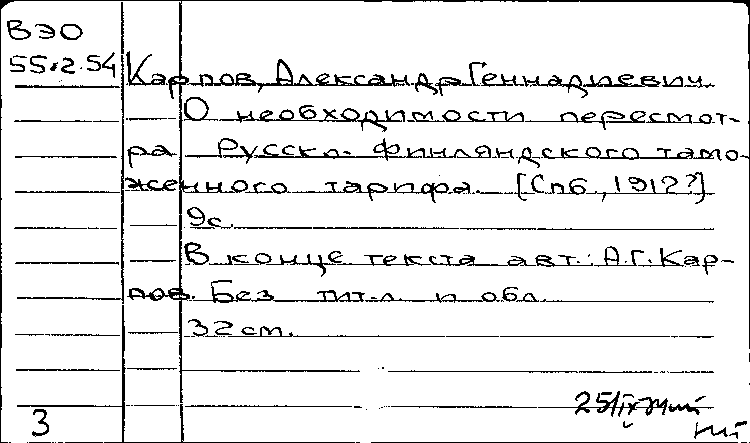 ВЭО
55.2.54
Карпов, Александр Геннадиевич.
О необходимости пересмот-
ра Русско-Финляндского тамо-
женного тарифа. [Спб., 1912?]
9с.
В конце текста авт.: А.Г. Кар-
пов. Без тит.л. и обл.
32 см.
3
25/IX